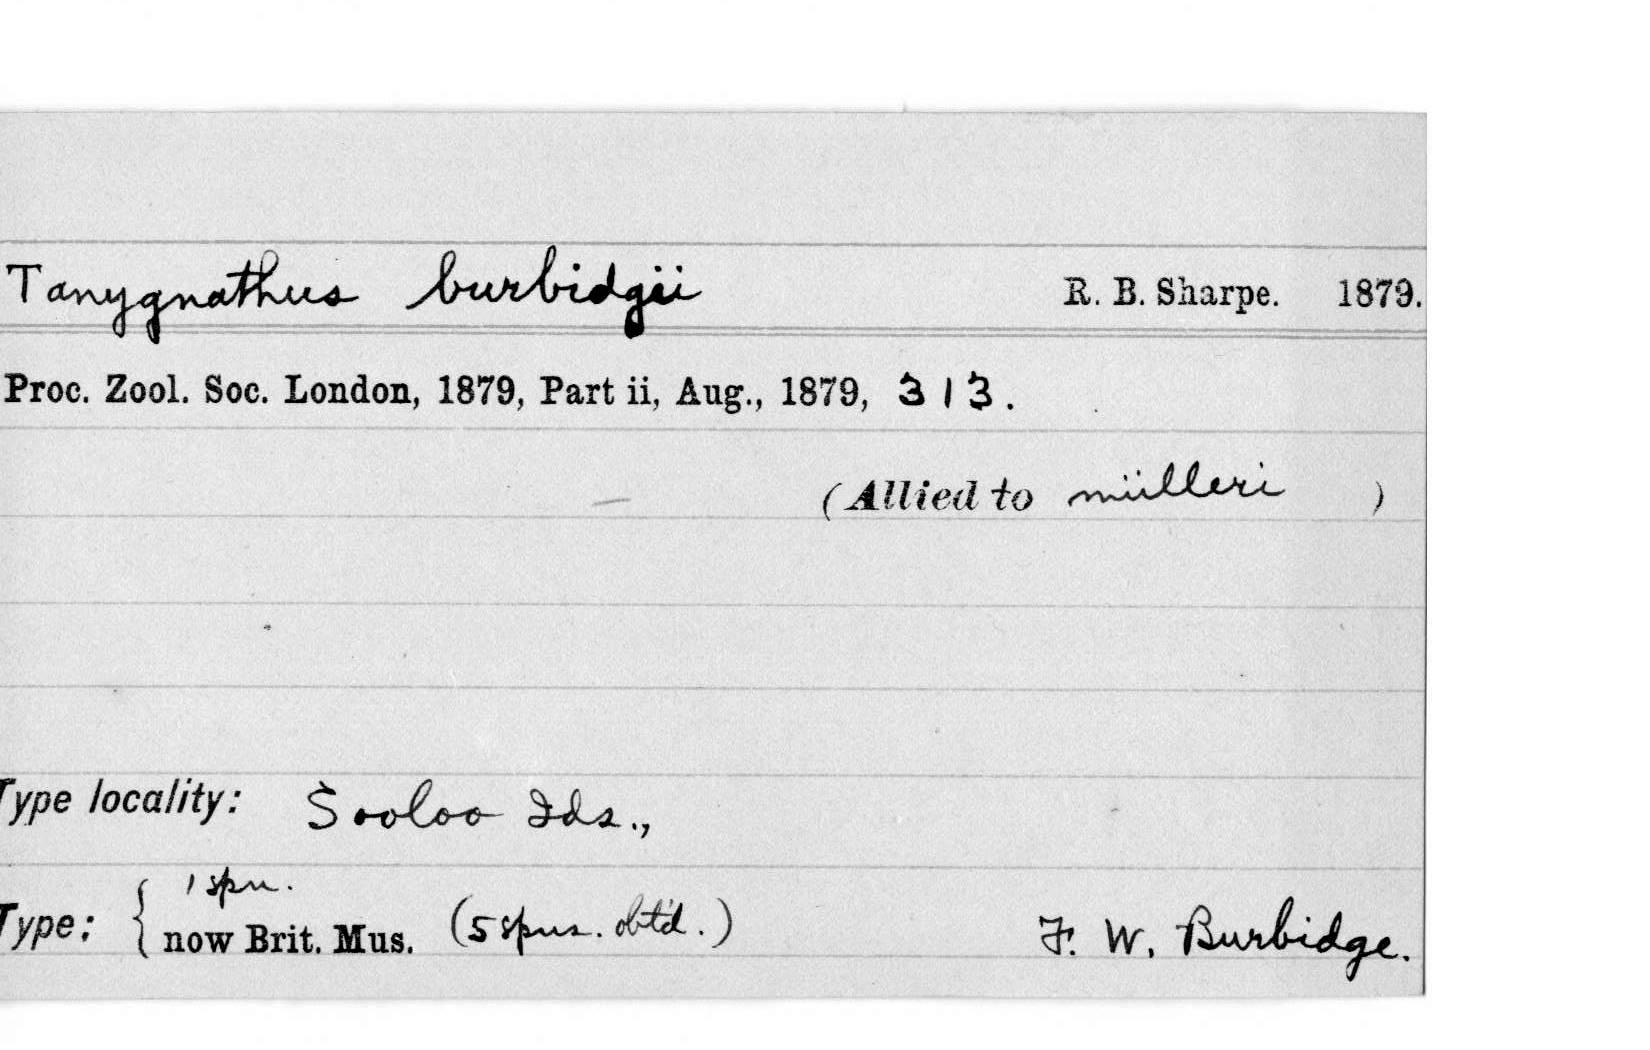 Tanygnathus burbidgii R. B. Sharpe. 1879.
Proc. Zool. Soc. London, 1879, Part ii, Aug., 1879, 313.
(Allied to mülleri )
Type locality: Sooloo Ids.,
1 spn.
Type: { now Brit. Mus. (5 spns. obtd.) F. W. Burbidge.